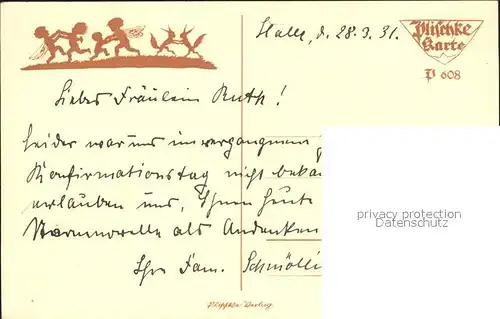 Halle, d. 28.3.31.
Plischke
Karte
P 608
Liebes Fräulein Ruth!
Leider war uns im vergangenem
Konfirmationstag nicht beka
erlauben uns, Ihnen heute
als Andenken
Ihre Fam. Schmölli
privacy protection
Datenschutz
Plischke-Verlag